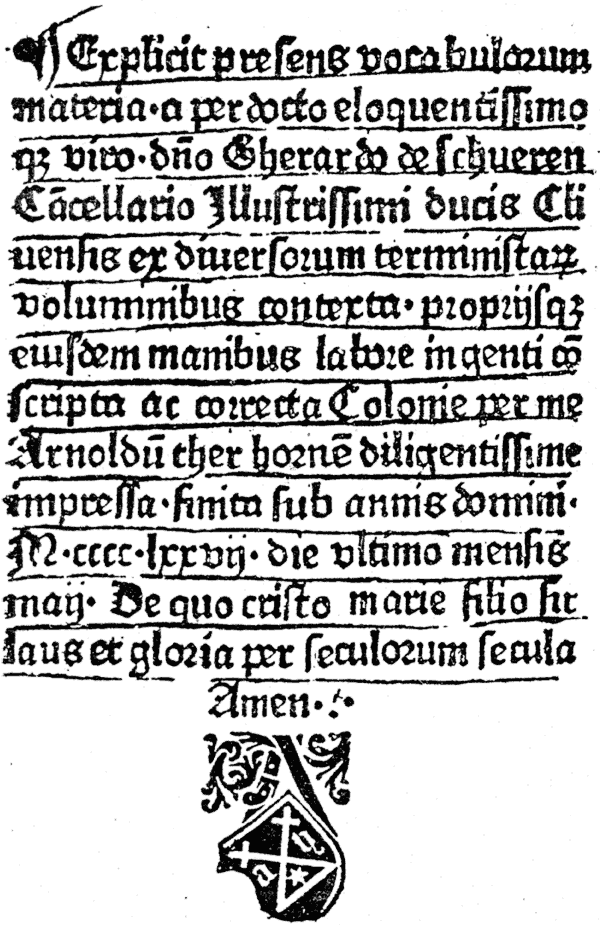 ¶ Explicit presens vocabulorum
materia · a perdocto eloquentissimo
qꝫ viro · dño Gherardo de schueren
Cãcellario Illustrissimi ducis Cli
uensis ex diuersorum terministaꝝ
voluminibus contexta · proprijsqꝫ
eiusdem manibus labore ingenti cõ
scripta ac correcta Colonie per me
Arnoldũ ther hornẽ diligentissime
impressa · finita sub annis domini ·
M · cccc · lxxvij · die vltimo mensis
maij · De quo cristo marie filio sit
laus et gloria per seculorum secula
Amen · : ·